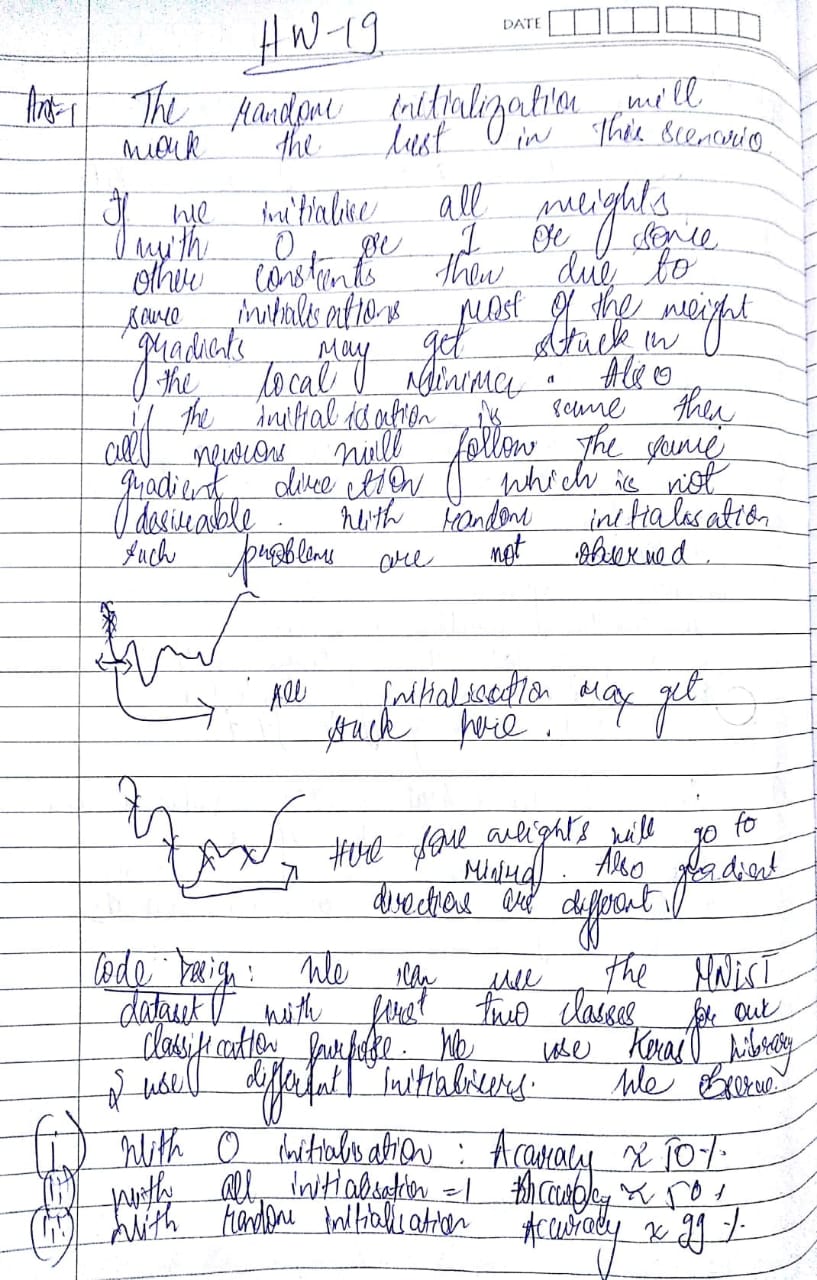 HW-19
DATE
Ans-1 The random initialization will
work the best in this scenario
If we initialise all weights
with 0 or 1 or some
other constants then due to
same initialisations most of the weight
gradients may get stuck in
the local minima. Also
if the initialisation is same then
all neurons will follow the same
gradient direction which is not
desireable. With random initialisation
such problems are not observed.
All initialisation may get
stuck here.
Here some weights will go to
minima. Also gradient
directions are different.
Code Design: We can use the MNIST
dataset with first two classes for our
classification purpose. We use Keras library
& use different initialisers. We observe.
(i) With 0 initialisation : Accuracy ≈ 50%.
(ii) with all initialisation = 1 Accuracy ≈ 50%
(iii) With random initialisation Accuracy ≈ 99%.